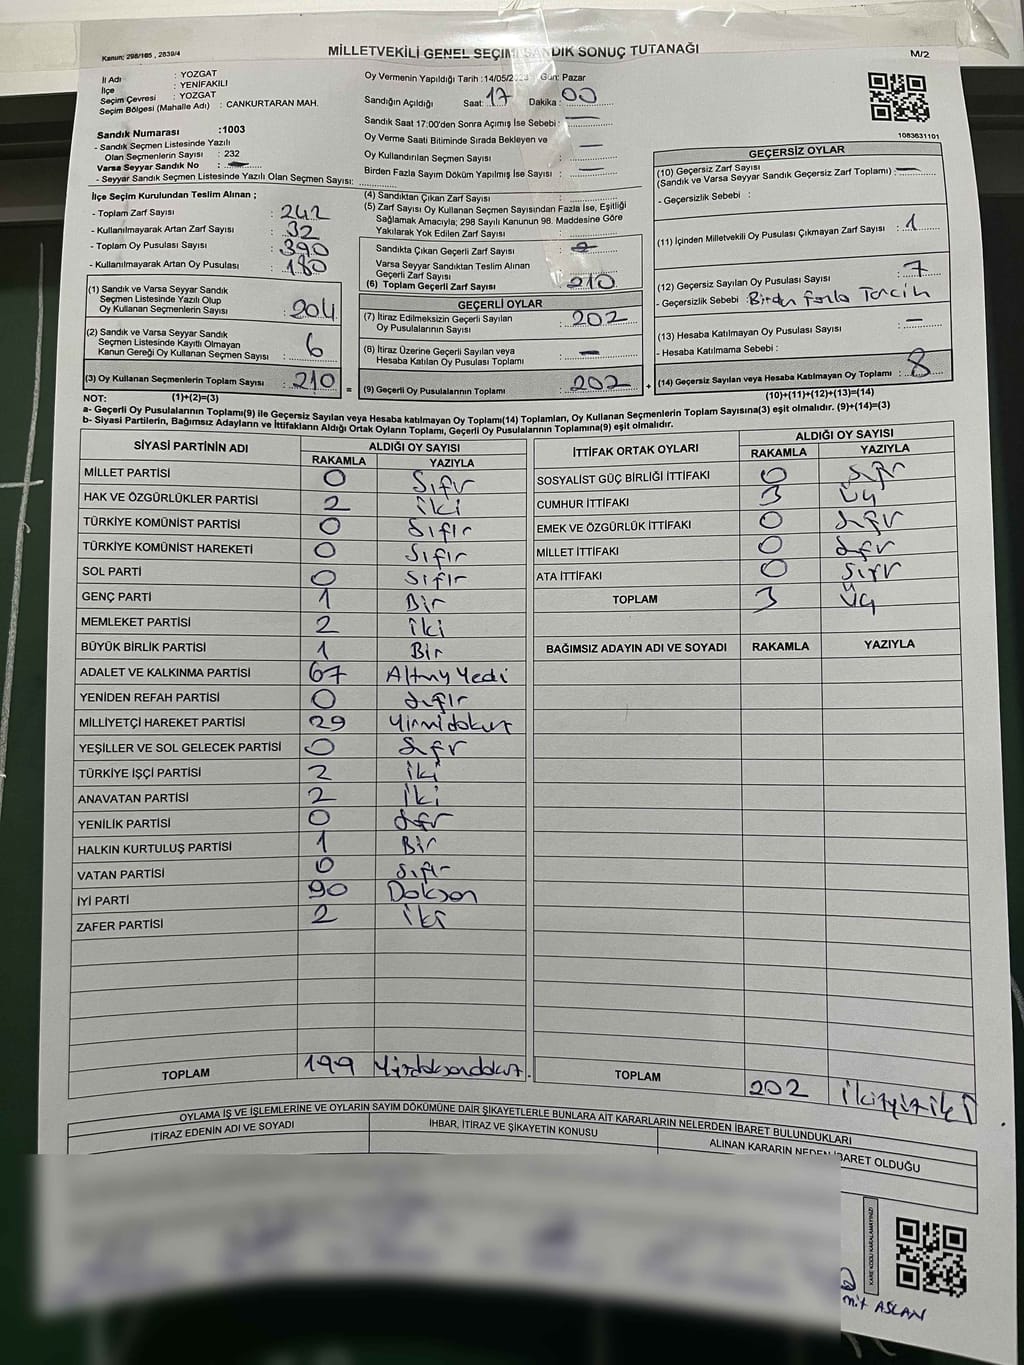 Kanun: 298/105 , 2839/4
MİLLETVEKİLİ GENEL SEÇİMİ SANDIK SONUÇ TUTANAĞI
M/2
İl Adı : YOZGAT
İlçe : YENİFAKILI
Seçim Çevresi : YOZGAT
Seçim Bölgesi (Mahalle Adı) : CANKURTARAN MAH.
Sandık Numarası :1003
- Sandık Seçmen Listesinde Yazılı
Olan Seçmenlerin Sayısı : 232
Varsa Seyyar Sandık No : —
- Seyyar Sandık Seçmen Listesinde Yazılı Olan Seçmen Sayısı:
Oy Vermenin Yapıldığı Tarih :14/05/2023 Gün: Pazar
Sandığın Açıldığı Saat: 17 Dakika : 00
Sandık Saat 17:00'den Sonra Açımış İse Sebebi : —
Oy Verme Saati Bitiminde Sırada Bekleyen ve
Oy Kullandırılan Seçmen Sayısı : —
Birden Fazla Sayım Döküm Yapılmış İse Sayısı : —
1083631101
İlçe Seçim Kurulundan Teslim Alınan ;
- Toplam Zarf Sayısı : 242
- Kullanılmayarak Artan Zarf Sayısı : 32
- Toplam Oy Pusulası Sayısı : 390
- Kullanılmayarak Artan Oy Pusulası : 180
(1) Sandık ve Varsa Seyyar Sandık
Seçmen Listesinde Yazılı Olup
Oy Kullanan Seçmenlerin Sayısı : 204
(2) Sandık ve Varsa Seyyar Sandık
Seçmen Listesinde Kayıtlı Olmayan
Kanun Gereği Oy Kullanan Seçmen Sayısı : 6
(3) Oy Kullanan Seçmenlerin Toplam Sayısı : 210
(4) Sandıktan Çıkan Zarf Sayısı
(5) Zarf Sayısı Oy Kullanan Seçmen Sayısından Fazla İse, Eşitliği
Sağlamak Amacıyla; 298 Sayılı Kanunun 98. Maddesine Göre
Yakılarak Yok Edilen Zarf Sayısı :
Sandıkta Çıkan Geçerli Zarf Sayısı :
Varsa Seyyar Sandıktan Teslim Alınan
Geçerli Zarf Sayısı :
(6) Toplam Geçerli Zarf Sayısı : 210
GEÇERLİ OYLAR
(7) İtiraz Edilmeksizin Geçerli Sayılan
Oy Pusulalarının Sayısı : 202
(8) İtiraz Üzerine Geçerli Sayılan veya
Hesaba Katılan Oy Pusulası Toplamı : —
= (9) Geçerli Oy Pusulalarının Toplamı : 202 +
GEÇERSİZ OYLAR
(10) Geçersiz Zarf Sayısı
(Sandık ve Varsa Seyyar Sandık Geçersiz Zarf Toplamı) : —
- Geçersizlik Sebebi :
(11) İçinden Milletvekili Oy Pusulası Çıkmayan Zarf Sayısı : 1
(12) Geçersiz Sayılan Oy Pusulası Sayısı : 7
- Geçersizlik Sebebi : Birden fazla Tercih
(13) Hesaba Katılmayan Oy Pusulası Sayısı : —
- Hesaba Katılmama Sebebi :
(14) Geçersiz Sayılan veya Hesaba Katılmayan Oy Toplamı : 8
NOT: (1)+(2)=(3)
(10)+(11)+(12)+(13)=(14)
a- Geçerli Oy Pusulalarının Toplamı(9) ile Geçersiz Sayılan veya Hesaba katılmayan Oy Toplamı(14) Toplamları, Oy Kullanan Seçmenlerin Toplam Sayısına(3) eşit olmalıdır. (9)+(14)=(3)
b- Siyasi Partilerin, Bağımsız Adayların ve İttifakların Aldığı Ortak Oyların Toplamı, Geçerli Oy Pusulalarının Toplamına(9) eşit olmalıdır.
SİYASİ PARTİNİN ADI ALDIĞI OY SAYISI
RAKAMLA YAZIYLA
MİLLET PARTİSİ 0 Sıfır
HAK VE ÖZGÜRLÜKLER PARTİSİ 2 iki
TÜRKİYE KOMÜNİST PARTİSİ 0 Sıfır
TÜRKİYE KOMÜNİST HAREKETİ 0 Sıfır
SOL PARTİ 0 Sıfır
GENÇ PARTİ 1 Bir
MEMLEKET PARTİSİ 2 iki
BÜYÜK BİRLİK PARTİSİ 1 Bir
ADALET VE KALKINMA PARTİSİ 67 Altmış Yedi
YENİDEN REFAH PARTİSİ 0 sıfır
MİLLİYETÇİ HAREKET PARTİSİ 29 Yirmidokuz
YEŞİLLER VE SOL GELECEK PARTİSİ 0 sıfır
TÜRKİYE İŞÇİ PARTİSİ 2 iki
ANAVATAN PARTİSİ 2 iki
YENİLİK PARTİSİ 0 sıfır
HALKIN KURTULUŞ PARTİSİ 1 Bir
VATAN PARTİSİ 0 sıfır
İYİ PARTİ 90 Doksan
ZAFER PARTİSİ 2 iki
TOPLAM 199 Yüzdoksandokuz.
İTTİFAK ORTAK OYLARI ALDIĞI OY SAYISI
RAKAMLA YAZIYLA
SOSYALİST GÜÇ BİRLİĞİ İTTİFAKI 0 sıfır
CUMHUR İTTİFAKI 3 Üç
EMEK VE ÖZGÜRLÜK İTTİFAKI 0 sıfır
MİLLET İTTİFAKI 0 sıfır
ATA İTTİFAKI 0 sıfır
TOPLAM 3 Üç
BAĞIMSIZ ADAYIN ADI VE SOYADI RAKAMLA YAZIYLA
TOPLAM 202 ikiyüziki
OYLAMA İŞ VE İŞLEMLERİNE VE OYLARIN SAYIM DÖKÜMÜNE DAİR ŞİKAYETLERLE BUNLARA AİT KARARLARIN NELERDEN İBARET BULUNDUKLARI
İTİRAZ EDENİN ADI VE SOYADI İHBAR, İTİRAZ VE ŞİKAYETİN KONUSU ALINAN KARARIN NEDEN İBARET OLDUĞU
KARE KODU KARALAMAYINIZ!
ASLAN